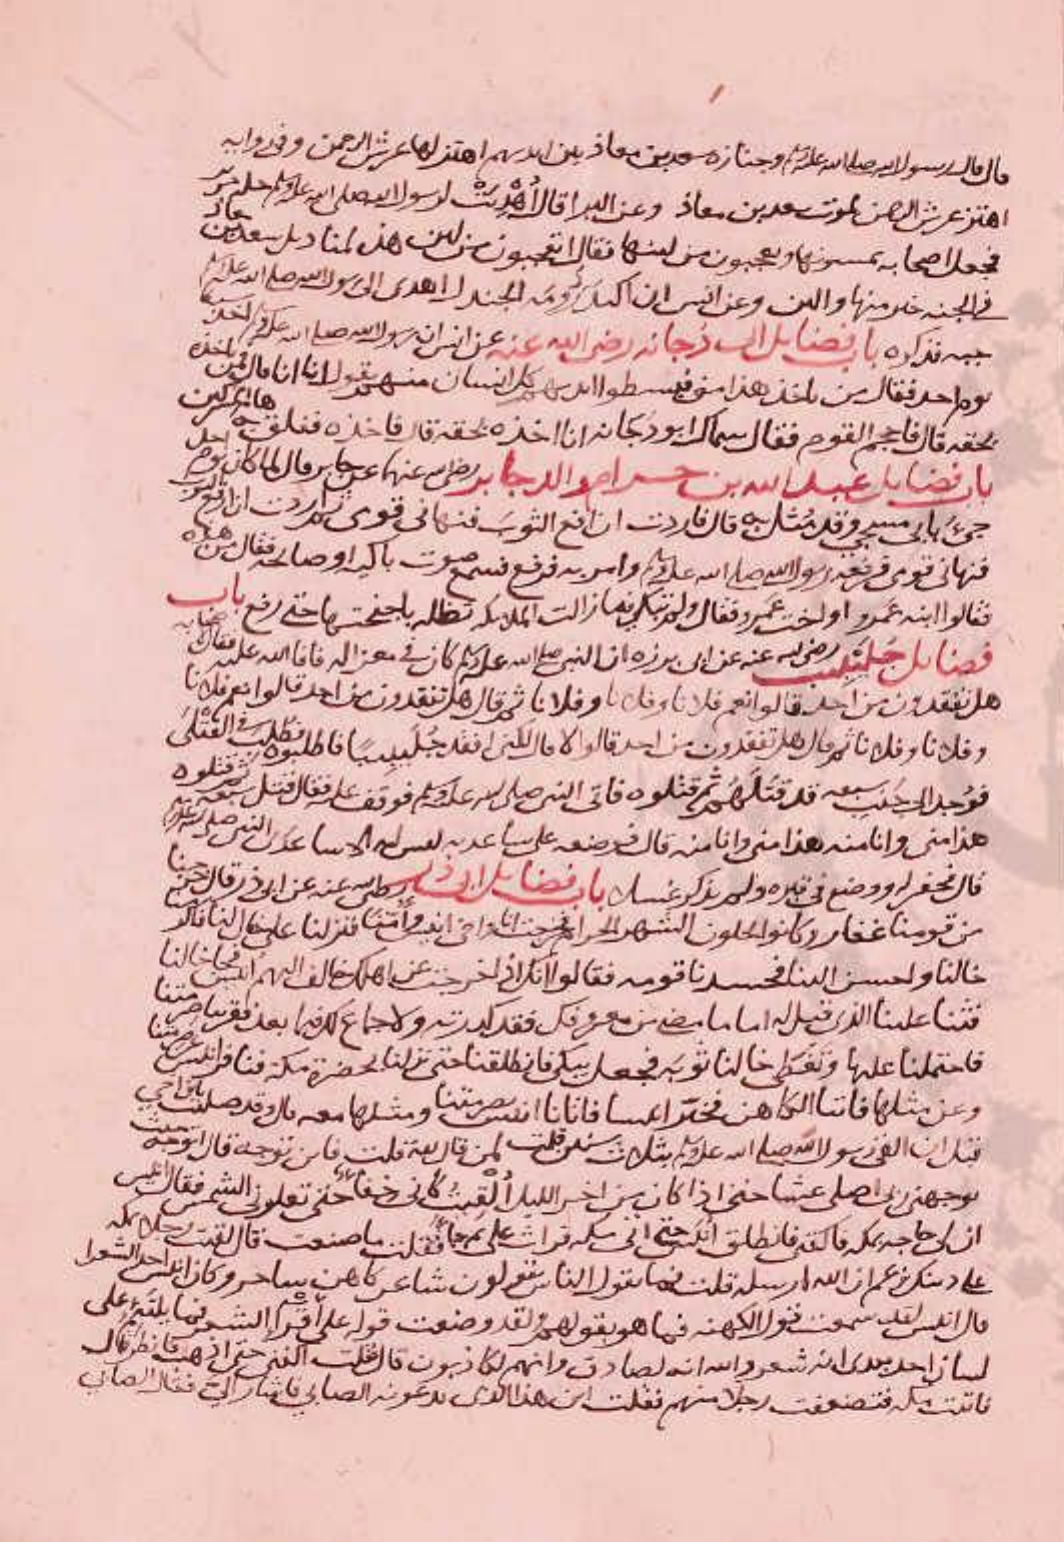 قال قال رسول الله صلى الله عليه وسلم وجنازه سعد بن معاذ بين ايديهم اهتز لها عرش الرحمن وفي روايه
اهتز عرش الرحمن لموت سعد بن معاذ وعن البرا قال أُهْدِيَتْ لرسول الله صلى الله عليه وسلم حله حرير
فجعل اصحابه يمسونها ويعجبون من لينها فقال اتعجبون من لين هذه لمناديل سعد بن معاذ
في الجنه خير منها والين وعن انس ان اكيدر دومه الجندل اهدى الى رسول الله صلى الله عليه وسلم
جبه فذكره باب فضايل ابي دُجانه رضي الله عنه عن انس ان رسول الله صلى الله عليه وسلم اخذ سيفا
يوم احد فقال من ياخذ هذا مني فبسطوا ايديهم كل انسان منهم يقول انا انا قال فمن ياخذه
بحقه قال فاحجم القوم فقال سماك ابو دُجانه انا اخذه بحقه قال فاخذه ففلق به هام المشركين
باب فضايل عبد الله بن حرام والد جابر رضي الله عنهما عن جابر قال لما كان يوم احد
جيء بابي مسجى وقد مُثل به قال فاردت ان ارفع الثوب فنهاني قومي ثم اردت ان ارفع الثوب
فنهاني قومي فرفعه رسول الله صلى الله عليه وسلم او امر به فرفع فسمع صوت باكيه او صائحه فقال من هذه
فقالوا ابنه عمرو او اخت عمرو فقال ولم تبكي فما زالت الملايكه تظله باجنحتها حتى رفع باب
فضايل جُلَيْبيب رضي الله عنه عن ابي برزه ان النبي صلى الله عليه وسلم كان في مغزى له فافا الله عليه فقال لاصحابه
هل تفقدون من احد قالوا نعم فلانا وفلانا وفلانا ثم قال هل تفقدون من احد قالوا نعم فلانا
وفلانا وفلانا ثم قال هل تفقدون من احد قالوا لا قال لكني افقد جُلَيبيبًا فاطلبوه فطُلب في القتلى
فوجد الى جنب سبعه قد قتلهم ثم قتلوه فاتى النبي صلى الله عليه وسلم فوقف عليه فقال قتل سبعه ثم قتلوه
هذا مني وانا منه هذا مني وانا منه قال فوضعه على ساعديه ليس له الا ساعدي النبي صلى الله عليه وسلم
قال فحفر له ووضع في قبره ولم يذكر غسلا باب فضايل ابي ذر رضي الله عنه عن ابي ذر قال خرجنا
من قومنا غفار وكانوا يحلون الشهر الحرام فخرجت انا واخي انيس وأمنا فنزلنا على خال لنا فاكرمنا
خالنا واحسن الينا فحسدنا قومه فقالوا انك اذا خرجت عن اهلك خالف اليهم انيس فجا خالنا
فنثا علينا الذي قيل له اما ما مضى من معروفك فقد كدرته ولا جماع لك فيما بعد فقربنا صرمتنا
فاحتملنا عليها وتغطى خالنا ثوبه فجعل يبكي فانطلقنا حتى نزلنا بحضرة مكه فنافر انيس عن صرمتنا
وعن مثلها فاتيا الكاهن فخير انيسا فاتانا انيس بصرمتنا ومثلها معه قال وقد صليت يابن اخي
قبل ان القى رسول الله صلى الله عليه وسلم بثلاث سنين قلت لمن قال لله قلت فاين توجه قال اتوجه حيث
يوجهني ربي اصلي عشا حتى اذا كان من اخر الليل أُلقيتُ كاني خفا حتى تعلوني الشمس فقال انيس
ان لي حاجه بمكه فاكفني فانطلق انيس حتى اتى مكه فراث علي ثم جا فقلت ما صنعت قال لقيت رجلا بمكه
على دينك يزعم ان الله ارسله قلت فما يقول الناس قال يقولون شاعر كاهن ساحر وكان انيس احد الشعرا
قال انيس لقد سمعت قول الكهنه فما هو بقولهم ولقد وضعت قوله على أقرا الشعر فما يلتئم على
لسان احد بعدي انه شعر والله انه لصادق وانهم لكاذبون قال قلت اكفني حتى اذهب فانظر قال
فاتيت مكه فتضعفت رجلا منهم فقلت اين هذا الذي تدعونه الصابي فاشار الي فقال الصابي